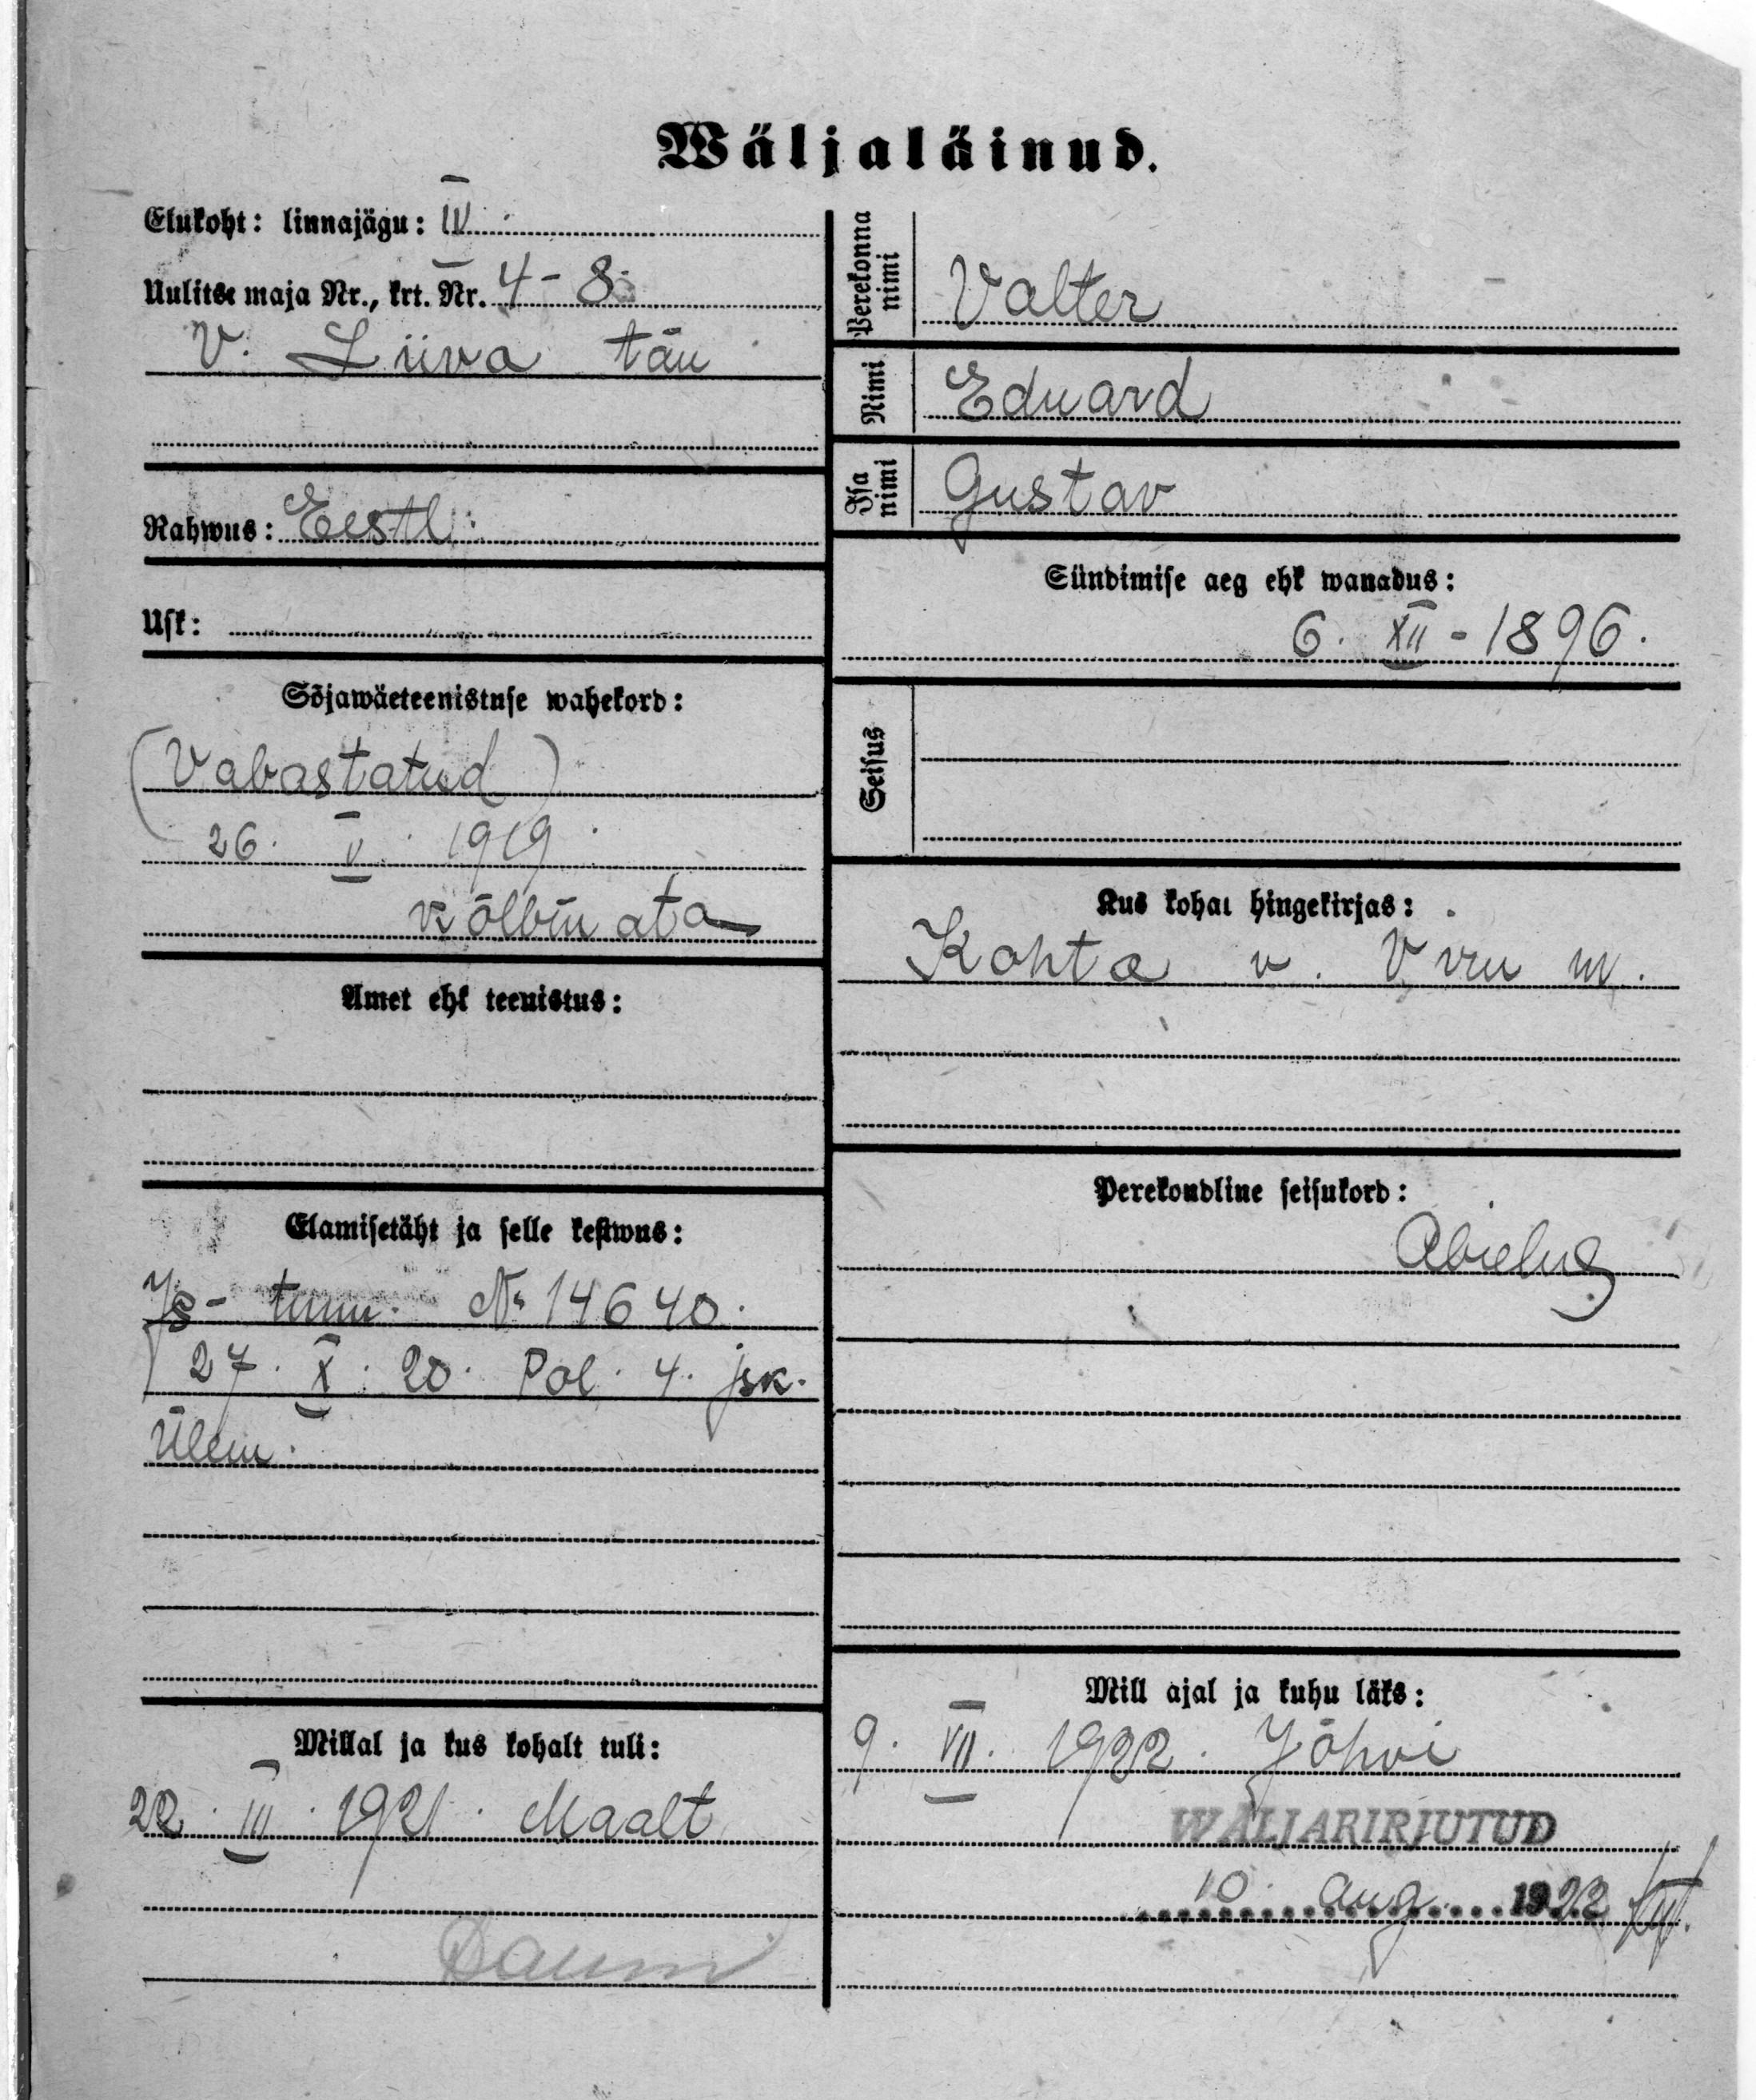 Wäljaläinud.
Elukoht: linnajägu: IV
Uulitse maja Nr., krt. Nr. 4-8
V. Liiva tän
Rahwus: Eestl.
Usk:
Sõjawäeteenistuse wahekord:
(Vabastatud)
26. V. 1919.
kõlbmata
Amet ehk teenistus:
Elamisetäht ja selle kestwus:
Is- tunn. № 14640.
27. X. 20. Pol. 4. jsk.
Ülem.
Millal ja kus kohalt tuli:
22. III. 1921. Maalt
Perekonna nimi
Valter
Nimi
Eduard
Isa nimi
Gustav
Sündimise aeg ehk wanadus:
6. XII - 1896.
Seisus
Kus kohal hingekirjas:
Kohta v. Vru m.
Perekondline seisukord:
Abielus
Mill ajal ja kuhu läks:
9. VII. 1922. Jõhvi
WÄLJAKIRJUTUD
10. aug. 1922